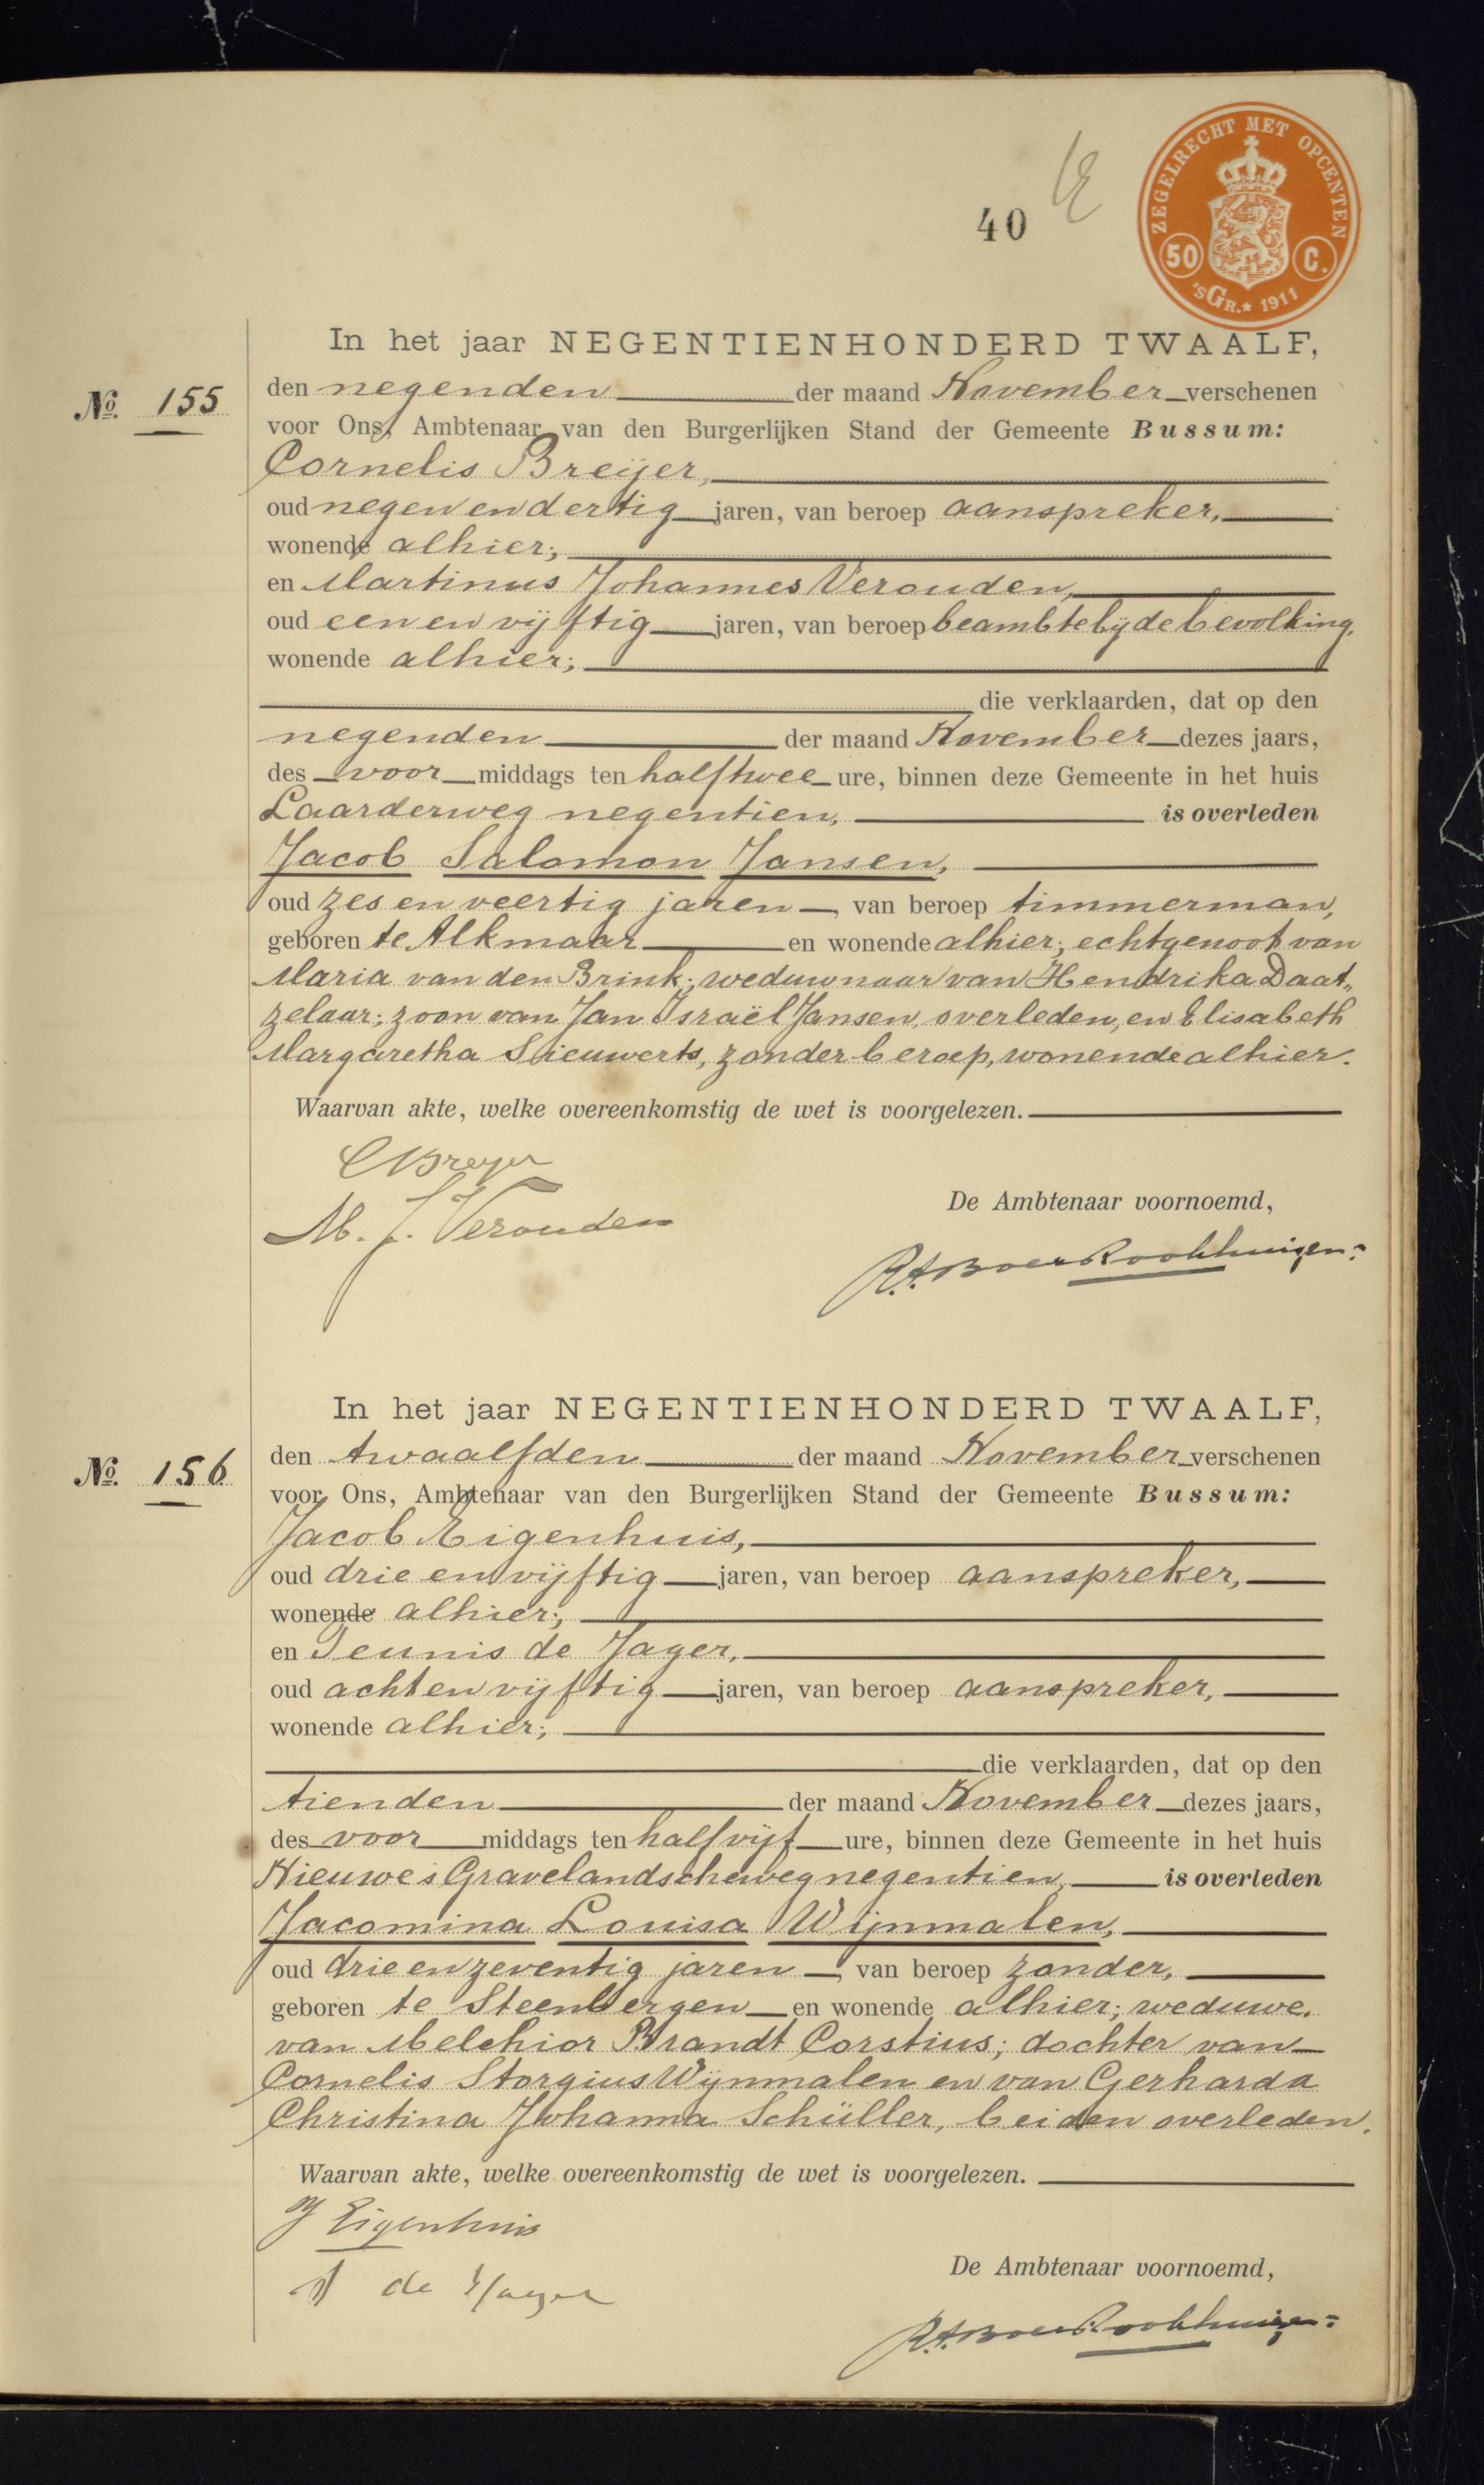 ZEGELRECHT MET OPCENTEN
50 C.
'S GR. * 1911
40
In het jaar NEGENTIENHONDERD TWAALF,
No. 155
den negenden der maand November verschenen
voor Ons, Ambtenaar van den Burgerlijken Stand der Gemeente Bussum:
Cornelis Breijer,
oud negen en dertig jaren, van beroep aanspreker,
wonende alhier;
en Martinus Johannes Verouden,
oud een en vijftig jaren, van beroep beambte bij de bevolking,
wonende alhier;
die verklaarden, dat op den
negenden der maand November dezes jaars,
des voor middags ten half twee ure, binnen deze Gemeente in het huis
Laarderweg negentien, is overleden
Jacob Salomon Jansen,
oud zes en veertig jaren, van beroep timmerman,
geboren te Alkmaar en wonende alhier; echtgenoot van
Maria van den Brink; weduwnaar van Hendrika Daat„
zelaar; zoon van Jan Israël Jansen, overleden, en Elisabeth
Margaretha Sieuwerts, zonder beroep, wonende alhier.
Waarvan akte, welke overeenkomstig de wet is voorgelezen.
C Breijer
M. J. Verouden
De Ambtenaar voornoemd,
In het jaar NEGENTIENHONDERD TWAALF,
No. 156
den twaalfden der maand November verschenen
voor Ons, Ambtenaar van den Burgerlijken Stand der Gemeente Bussum:
Jacob Eigenhuis,
oud drie en vijftig jaren, van beroep aanspreker,
wonende alhier;
en Teunis de Jager,
oud acht en vijftig jaren, van beroep aanspreker,
wonende alhier;
die verklaarden, dat op den
tienden der maand November dezes jaars,
des voor middags ten half vijf ure, binnen deze Gemeente in het huis
Nieuwe 's Gravelandscheweg negentien, is overleden
Jacomina Louisa Wijnmalen,
oud drie en zeventig jaren, van beroep zonder,
geboren te Steenbergen en wonende alhier; weduwe
van Melchior Brandt Corstius; dochter van
Cornelis Storgius Wijnmalen en van Gerharda
Christina Johanna Schüller, beiden overleden.
Waarvan akte, welke overeenkomstig de wet is voorgelezen.
J Eigenhuis
T de Jager
De Ambtenaar voornoemd,